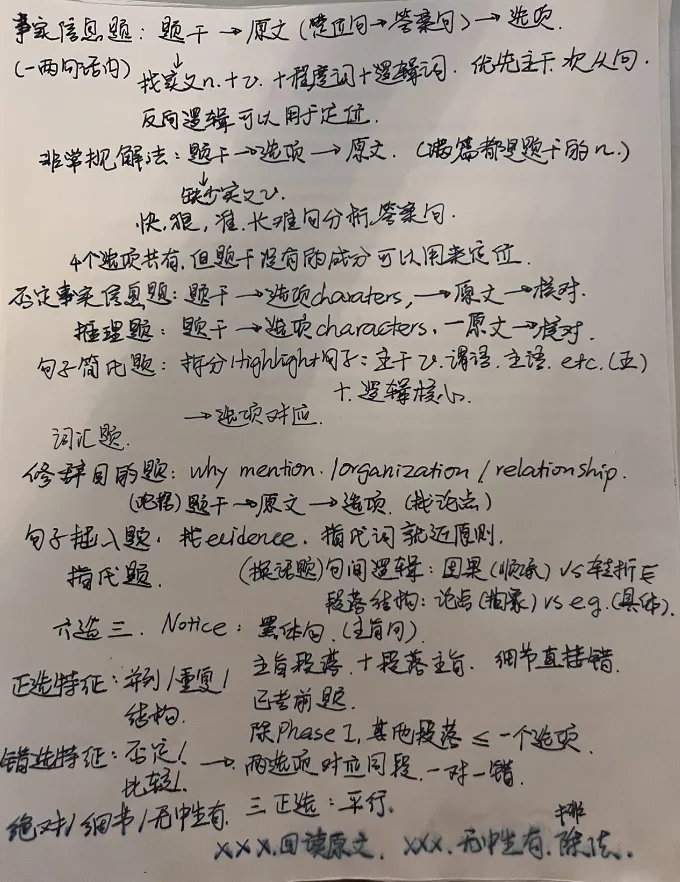 事实信息题：题干→原文（定位句→答案句）→选项.
（一两句话内） 找实义n.+v.+程度词+逻辑词. 优先主干次从句.
反向逻辑可以用于定位.
非常规解法：题干→选项→原文.（满篇都是题干的n.）
缺少实义v.
快，狠，准.长难句分析.答案句.
4个选项共有,但题干没有的成分可以用来定位.
否定事实信息题：题干→选项charaters,→原文→核对.
推理题：题干→选项characters.—原文→核对.
句子简化题：拆分Highlight句子：主干v.谓语.主语.etc.(五)
+逻辑核心.
→选项对应.
词汇题.
修辞目的题：why mention./organization/relationship.
（论据）题干→原文→选项.（找论点）
句子插入题.找evidence.指代词就近原则.
指代题. （接话题）句间逻辑：因果(顺承) vs 转折
段落结构：论点(抽象) vs e.g.(具体).
六选三. Notice：黑体句.(主旨句).
正选特征：并列/重复/ 主旨段落+段落主旨. 细节直接错.
结构. 已考前题.
除Phase 1,其他段落≤一个选项.
错选特征：否定!→两选项对应同段.一对一错.
比较!.
绝对/细节/无中生有. 三正选：平行.
排
×××.回读原文. ×××.无中生有.除法.